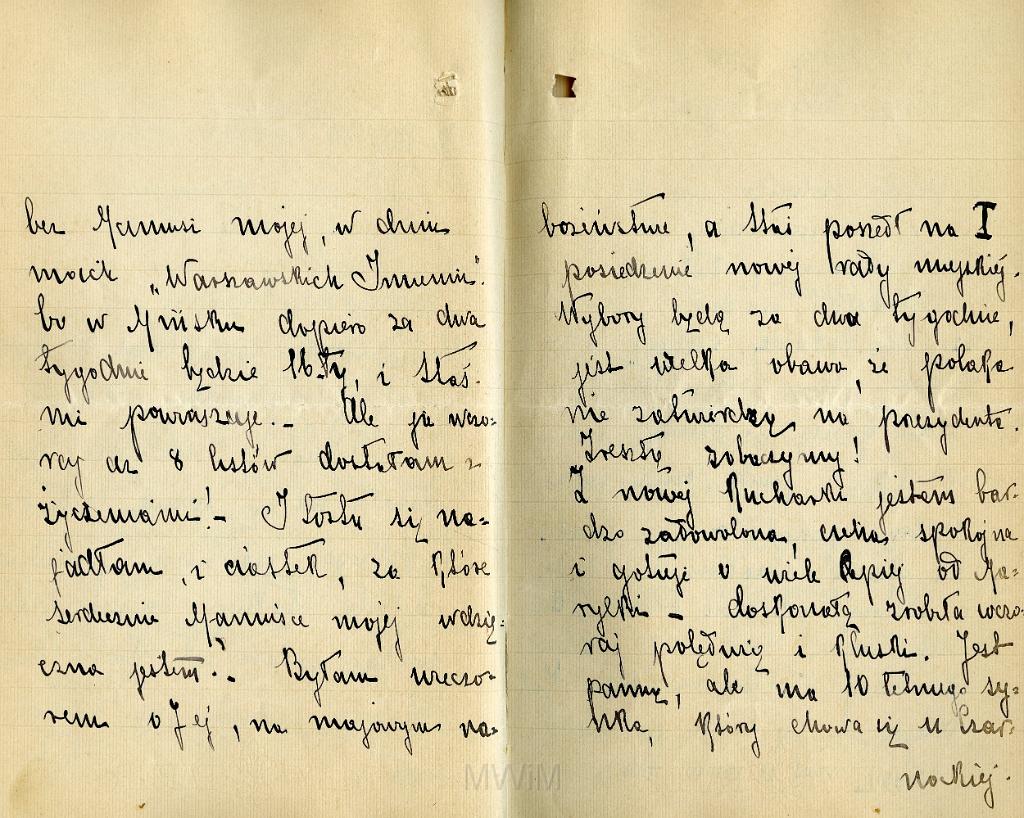 bez Mamusi mojej, w dniu
moich „Warszawskich Imienin".
bo w Mińsku dopiero za dwa
tygodnie będzie 16-ty, i Staś
mi powraszuje. – Ale ja wczo-
raj aż 8 listów dostałam z
życzeniami! – I tortu się na-
jadłam, i ciastek, za które
serdecznie Mamusce mojej wdzię-
czna jestem! – Byłam wieczo-
rem o 7 ej, na majowym na-
bożeństwie, a Staś poszedł na I
posiedzenie nowej rady miejskiej.
Wybory będą za dwa tygodnie,
jest wielka obawa, że polaka
nie zatwierdzą na prezydenta.
Zresztą zobaczymy!
Z nowej kucharki jestem bar-
dzo zadowolona, cicha, spokojna
i gotuje o wiele lepiej od Ma-
rylki – doskonałą zrobiła wczo-
raj polędwicę i kluski. Jest
panną, ale ma 10 letniego sy-
nka, który chowa się u Czar-
nockiej.
MWiM